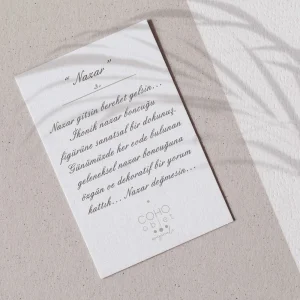 “ Nazar ”
Nazar gitsin bereket gelsin...
İkonik nazar boncuğu
figürüne sanatsal bir dokunuş.
Günümüzde her evde bulunan
geleneksel nazar boncuğuna
özgün ve dekoratif bir yorum
kattık... Nazar değmesin...
COHO